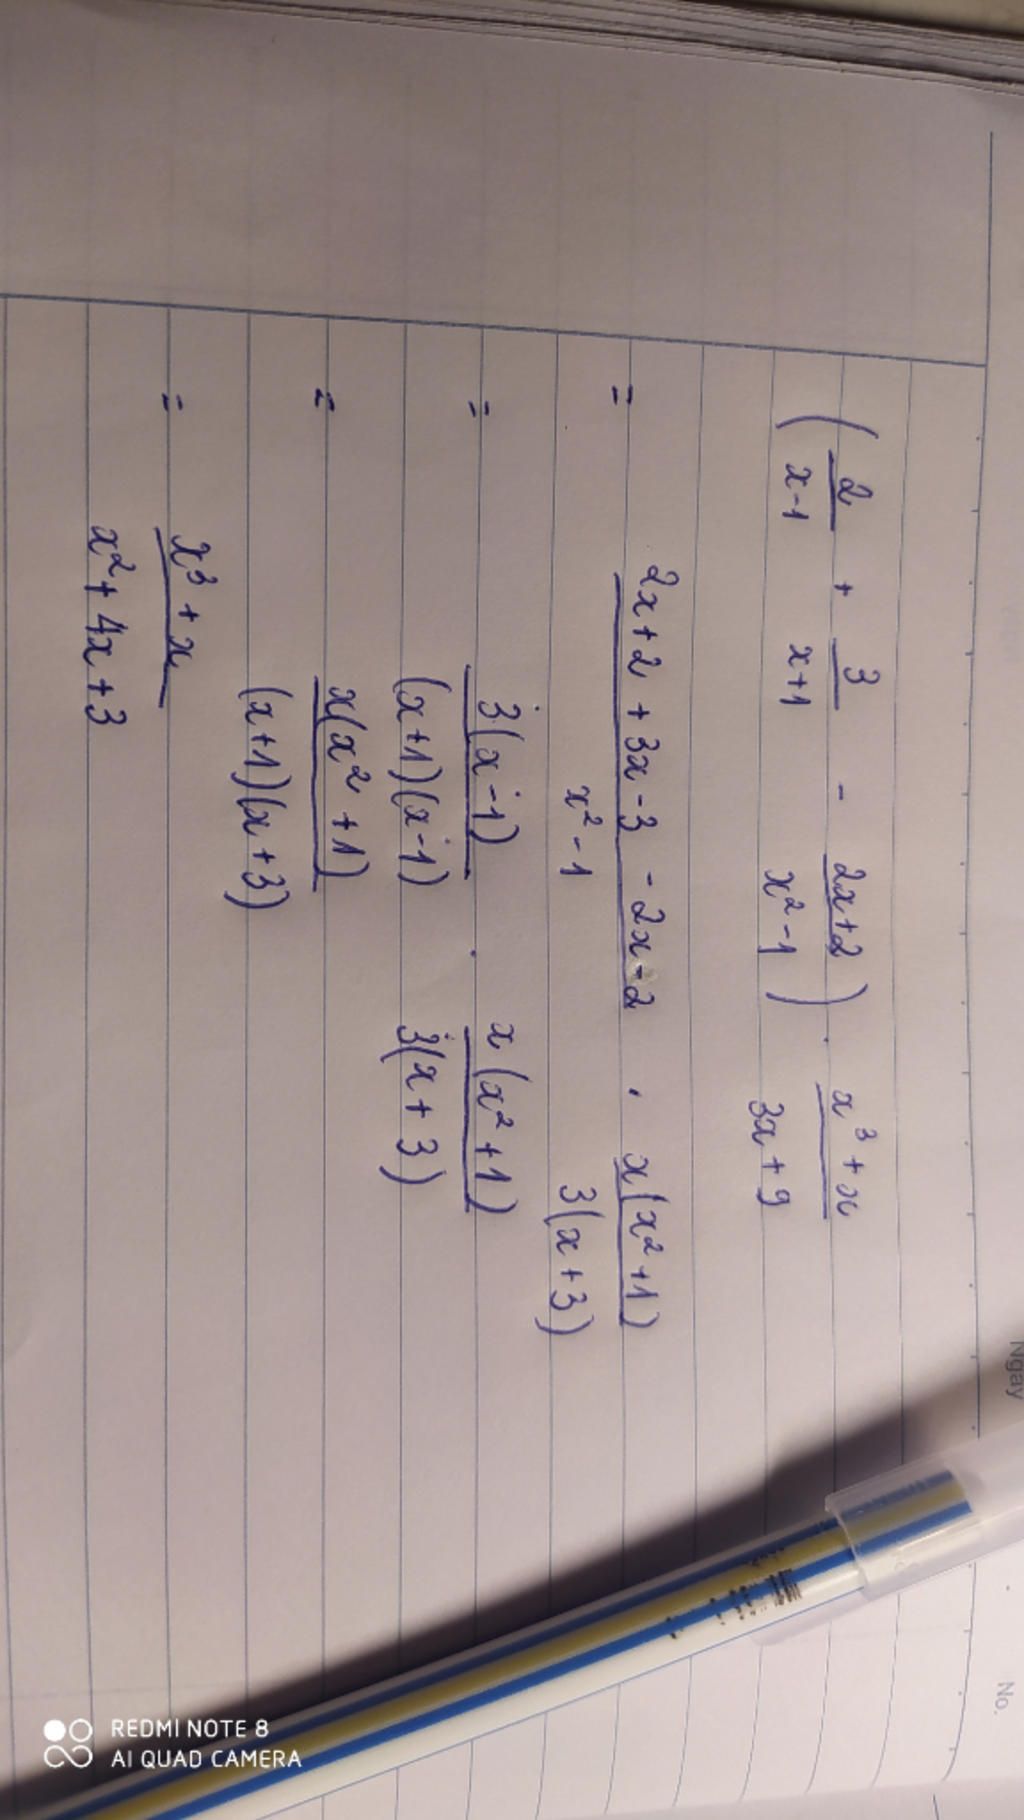 (2/(x-1) + 3/(x+1) - (2x+2)/(x²-1)) · (x³+x)/(3x+9)
= (2x+2+3x-3-2x-2)/(x²-1) · x(x²+1)/(3(x+3))
= 3(x-1)/((x+1)(x-1)) · x(x²+1)/(3(x+3))
= x(x²+1)/((x+1)(x+3))
= (x³+x)/(x²+4x+3)
Ngày
No.
REDMI NOTE 8
AI QUAD CAMERA